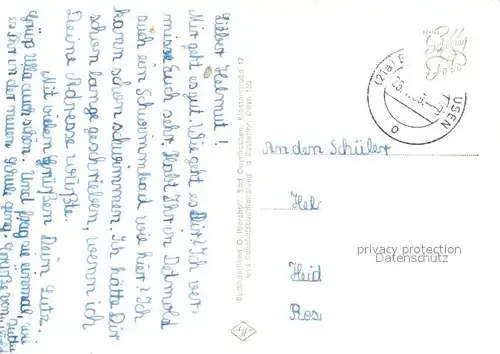 Lieber Helmut!
Mir geht es gut. Wie geht es Dir? Ich ver-
misse Euch sehr. Habt Ihr in Detmold
auch ein Schwimmbad wie hier? Ich
kann schon schwimmen. Ich hätte Dir
schon lange geschrieben, wenn ich
Deine Adresse wüßte.
Mit vielen Grüßen Dein Lutz.
Grüß Ulla auch schön. Und frag sie einmal, wie
es ihr in der neuen Schule geht. Grüße von
Buchhandlung
Bad Oeynhausen, Klosterstraße
(21a) B
USEN
An den Schüler
Hel
Heid
Ros
privacy protection
Datenschutz